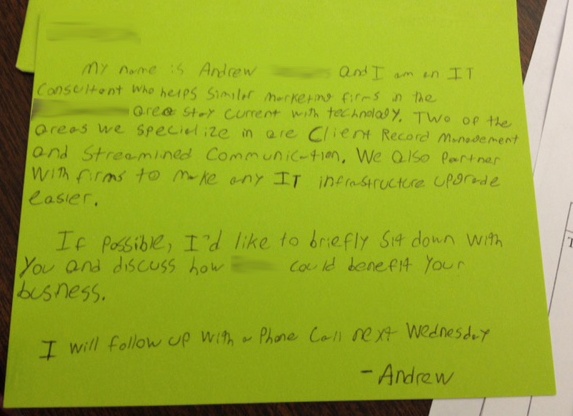 My name is Andrew and I am an IT
Consultent who helps similar marketing firms in the
area stay current with technology. Two of the
areas we specialize in are Client Record Management
and Streamined Communication. We also Partner
with firms to make any IT infrastructure upgrade
easier.
If possible, I'd like to briefly sit down with
you and discuss how could benefit your
busness.
I will follow up with a Phone Call next Wednesday
- Andrew